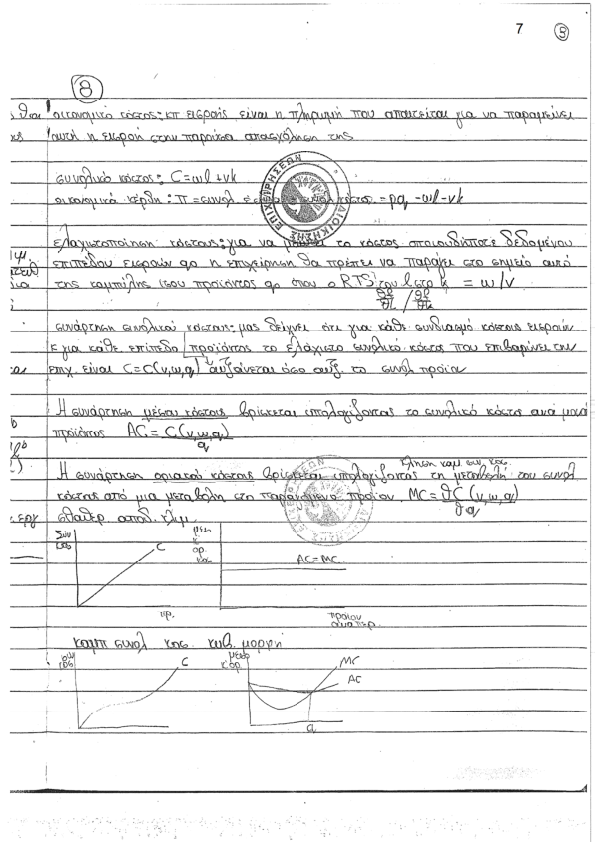 7 8
8
οικονομικό κόστος: κπ εισροής είναι η πληρωμή που απαιτείται για να παραμείνει
αυτή η εισροή στην παρούσα απασχόληση της
συνολικό κόστος: C=wl+vk
οικονομικά κέρδη: π = συνολ. = pq -wl-vk
ελαχιστοποίηση κόστους: για να το κόστος οποιουδήποτε δεδομένου
επιπέδου εισροών q0 η επιχείρηση θα πρέπει να παράγει στο σημείο αυτό
της καμπύλης ίσου προϊόντος q0 όπου ο RTS του l στο k = w/v
θq/θl / θq/θk
συνάρτηση συνολικού κόστους: μας δείχνει ότι για κάθε συνδιασμό κόστους εισροών
κ για κάθε επίπεδο προϊόντος το ελάχιστο συνολικό κόστος που επιβαρύνει την
επιχ. είναι C=C(v,w,q) αυξάνεται όσο αυξ. το συνολ προϊόν
Η συνάρτηση μέσου κόστους βρίσκεται υπολογίζοντας το συνολικό κόστος ανά μονά
προϊόντος AC = C(v,w,q)/q
κλήση καμ. συν. κος.
Η συνάρτηση οριακού κόστους βρίσκεται υπολογίζοντας τη μεταβολή του συνολ
κόστους από μια μεταβολή στο παραγόμενο προϊόν MC = θC(v,w,q)/θq
σταθερ. αποδ. κλιμ.
C
AC=MC
πρ.
προϊον
καμπ συνολ κος. κυβ. μορφή
C
MC
AC
q
ΔΙΟΙΚΗΣΗΣ ΕΠΙΧΕΙΡΗΣΕΩΝ